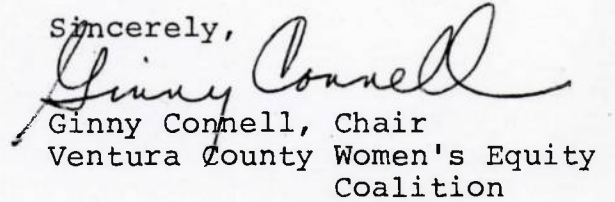 Sincerely,
Ginny Connell
Ginny Connell, Chair
Ventura County Women's Equity
Coalition